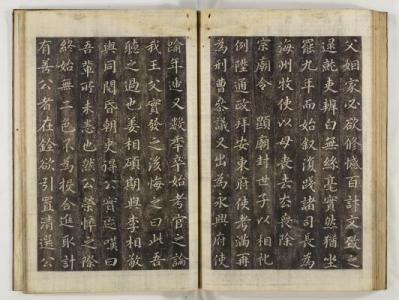 父姻家必欲修憾百計文致之
逮就吏辦白無絲毫實然猶坐
罷九年而始叙復踐諸司長為
海州牧使以母喪去去喪除
宗廟令 顯廟封世子以相礼
例陞通政拜安東府使考滿再
為刑曹參議又出為永興府使
踰年遞又數年卒始考官之論
我王父實發之後悔之曰此吾
聽之過也姜相碩期與李相敬
輿同閒昏朝吏操公實迹嘆曰
吾輩所未悉也然公榮悴之際
終始無二色不為授合進取計
有善公者在銓欲引置清選公